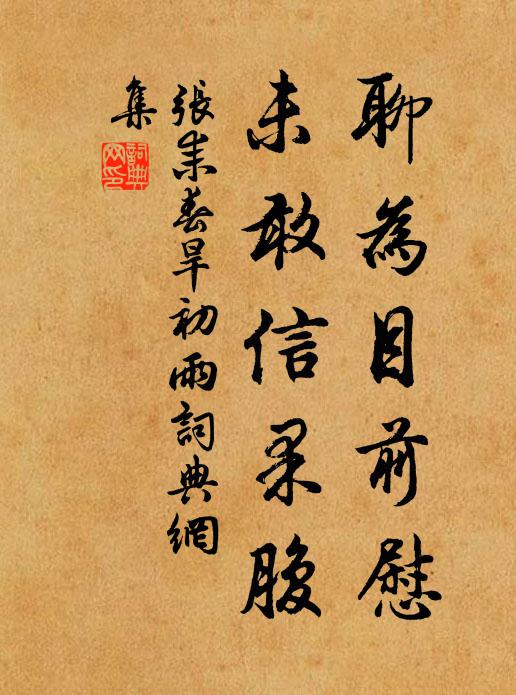 聊為目前慰
未敢信果腹
張耒春旱初雨詞典網
集
詞典網印